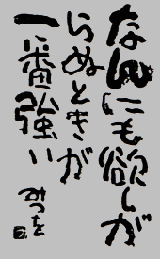 なんにも欲しが
らぬときが
一番強い
みつを